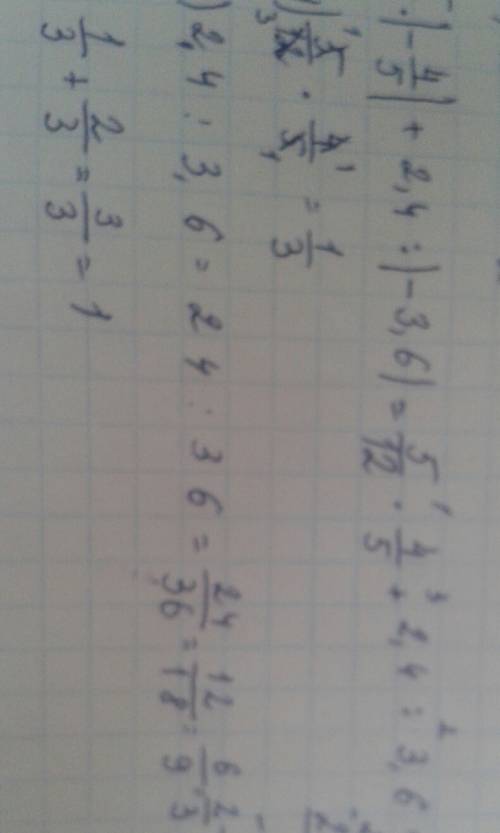 · |-4/5| + 2,4 : |-3,6| = 5/12 · 4/5 + 2,4 : 3,6
5/12 · 4/5 = 1/3
) 2,4 : 3,6 = 24 : 36 = 24/36 = 12/18 = 6/9 = 2/3
1/3 + 2/3 = 3/3 = 1